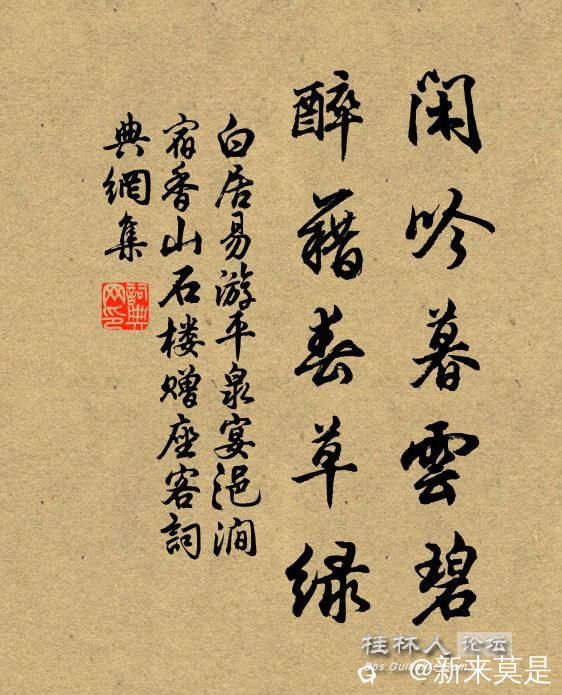 闲吟暮雲碧
醉藉春草绿
白居易游平泉宴浥涧
宿香山石楼赠座客詞
典網集
詞典网印
桂林人论坛
bbs.Guilinlife.com
@新来莫是